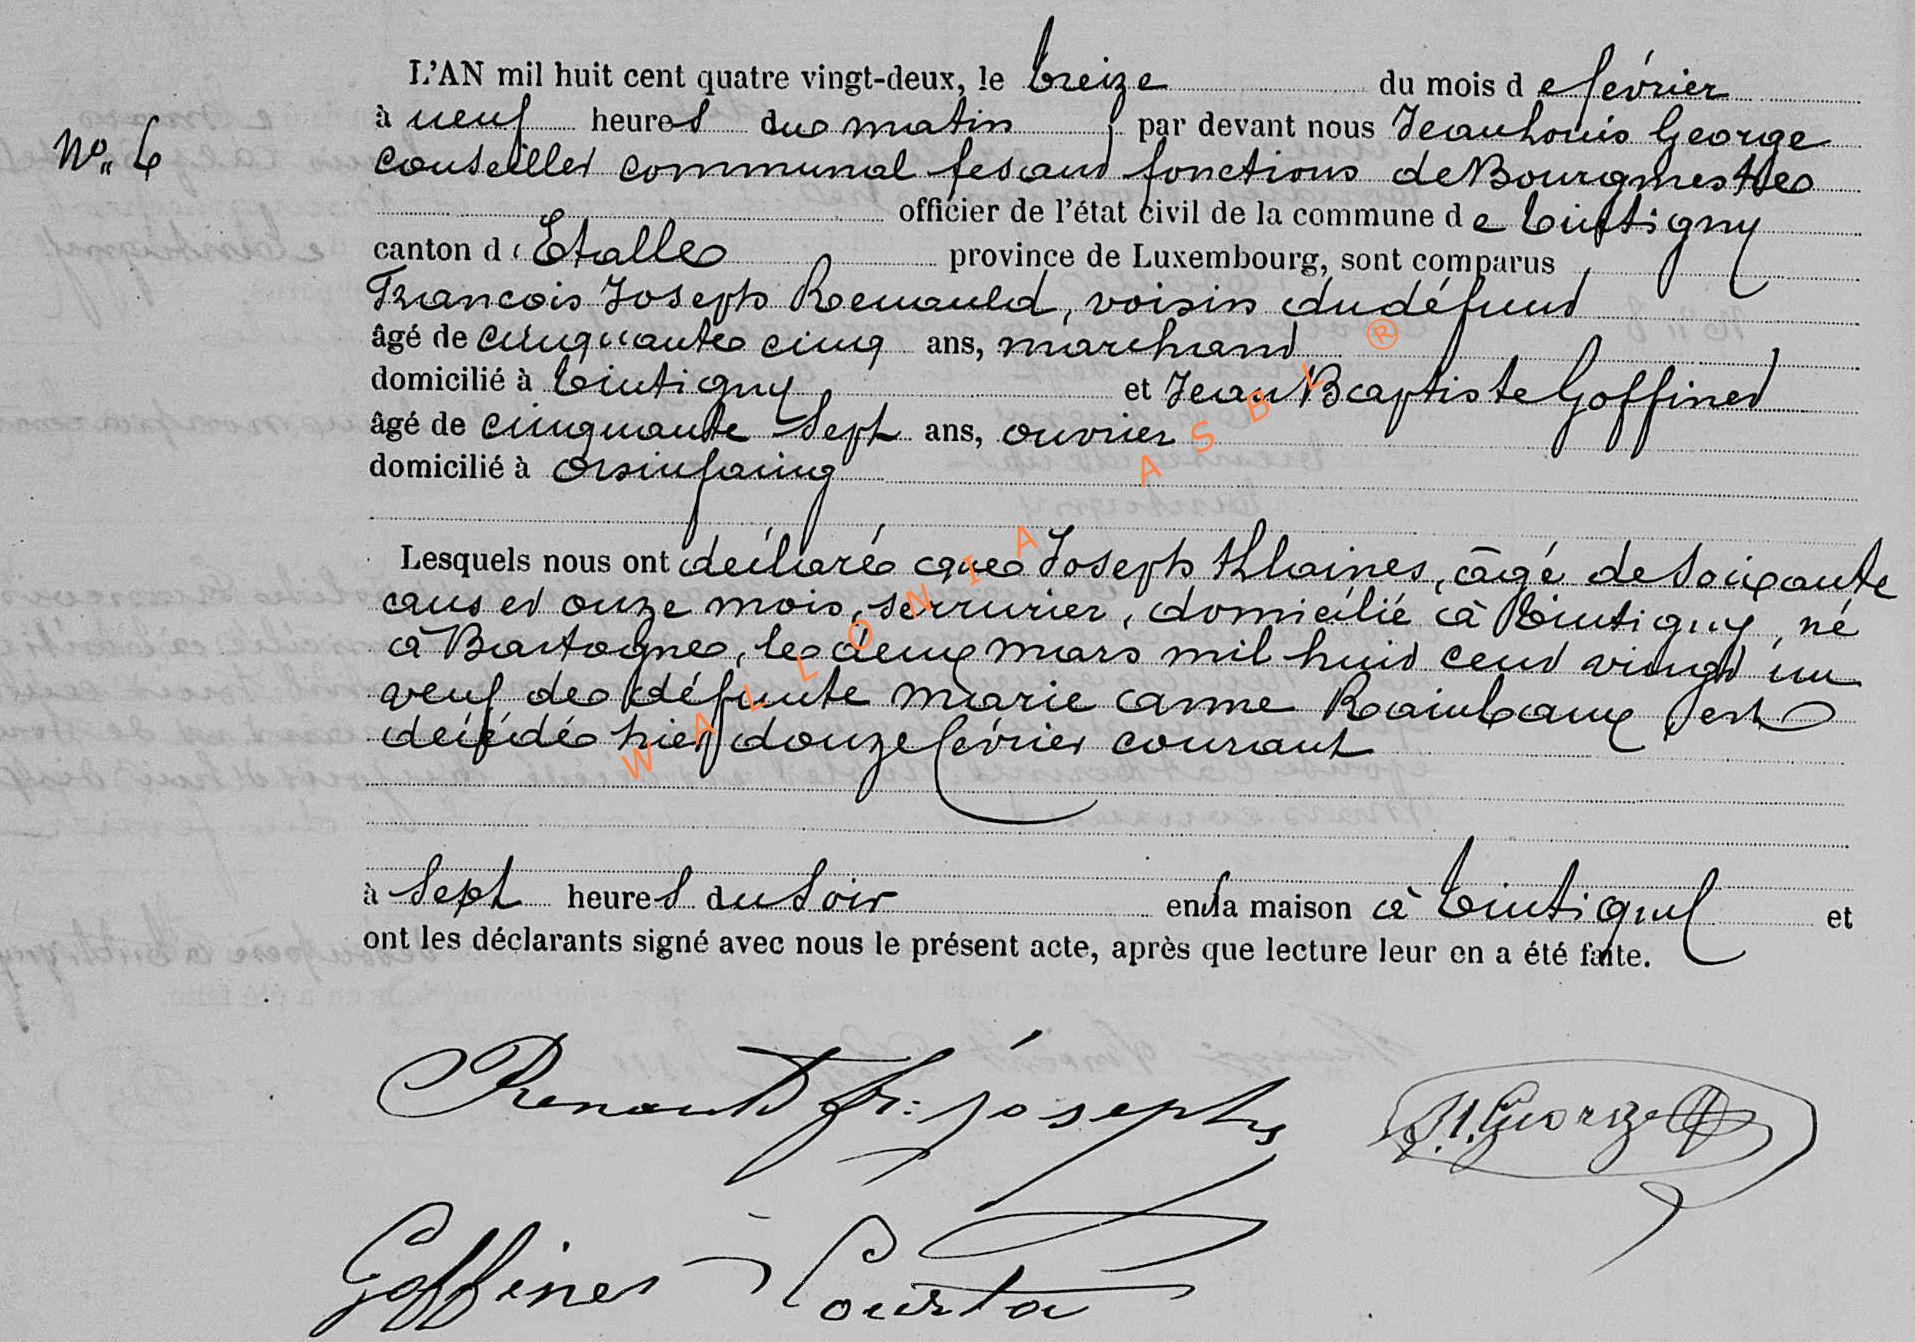 L'AN mil huit cent quatre vingt-deux, le treize du mois de février
à neuf heures du matin, par devant nous Jean Louis George
N° 6
conseiller communal fesant fonctions de Bourgmestre
officier de l'état civil de la commune de Tintigny
canton d'Etalle province de Luxembourg, sont comparus
Francois Joseph Renauld, voisin du défunt
âgé de cinquante cinq ans, marchand
domicilié à Tintigny et Jean Baptiste Goffinet
âgé de cinquante sept ans, ouvrier
domicilié à Orsinfaing
Lesquels nous ont déclaré que Joseph Hlaines, âgé de soixante
ans et onze mois, serrurier, domicilié à Tintigny, né
à Bastogne, le deux mars mil huit cent vingt un
veuf de défunte marie anne Raimbaux est
décédé hier douze février courant
à sept heures du soir en sa maison à Tintigny et
ont les déclarants signé avec nous le présent acte, après que lecture leur en a été faite.
Renauld fr: joseph
J. l. George
Goffinet
WALLONIA ASBL ®